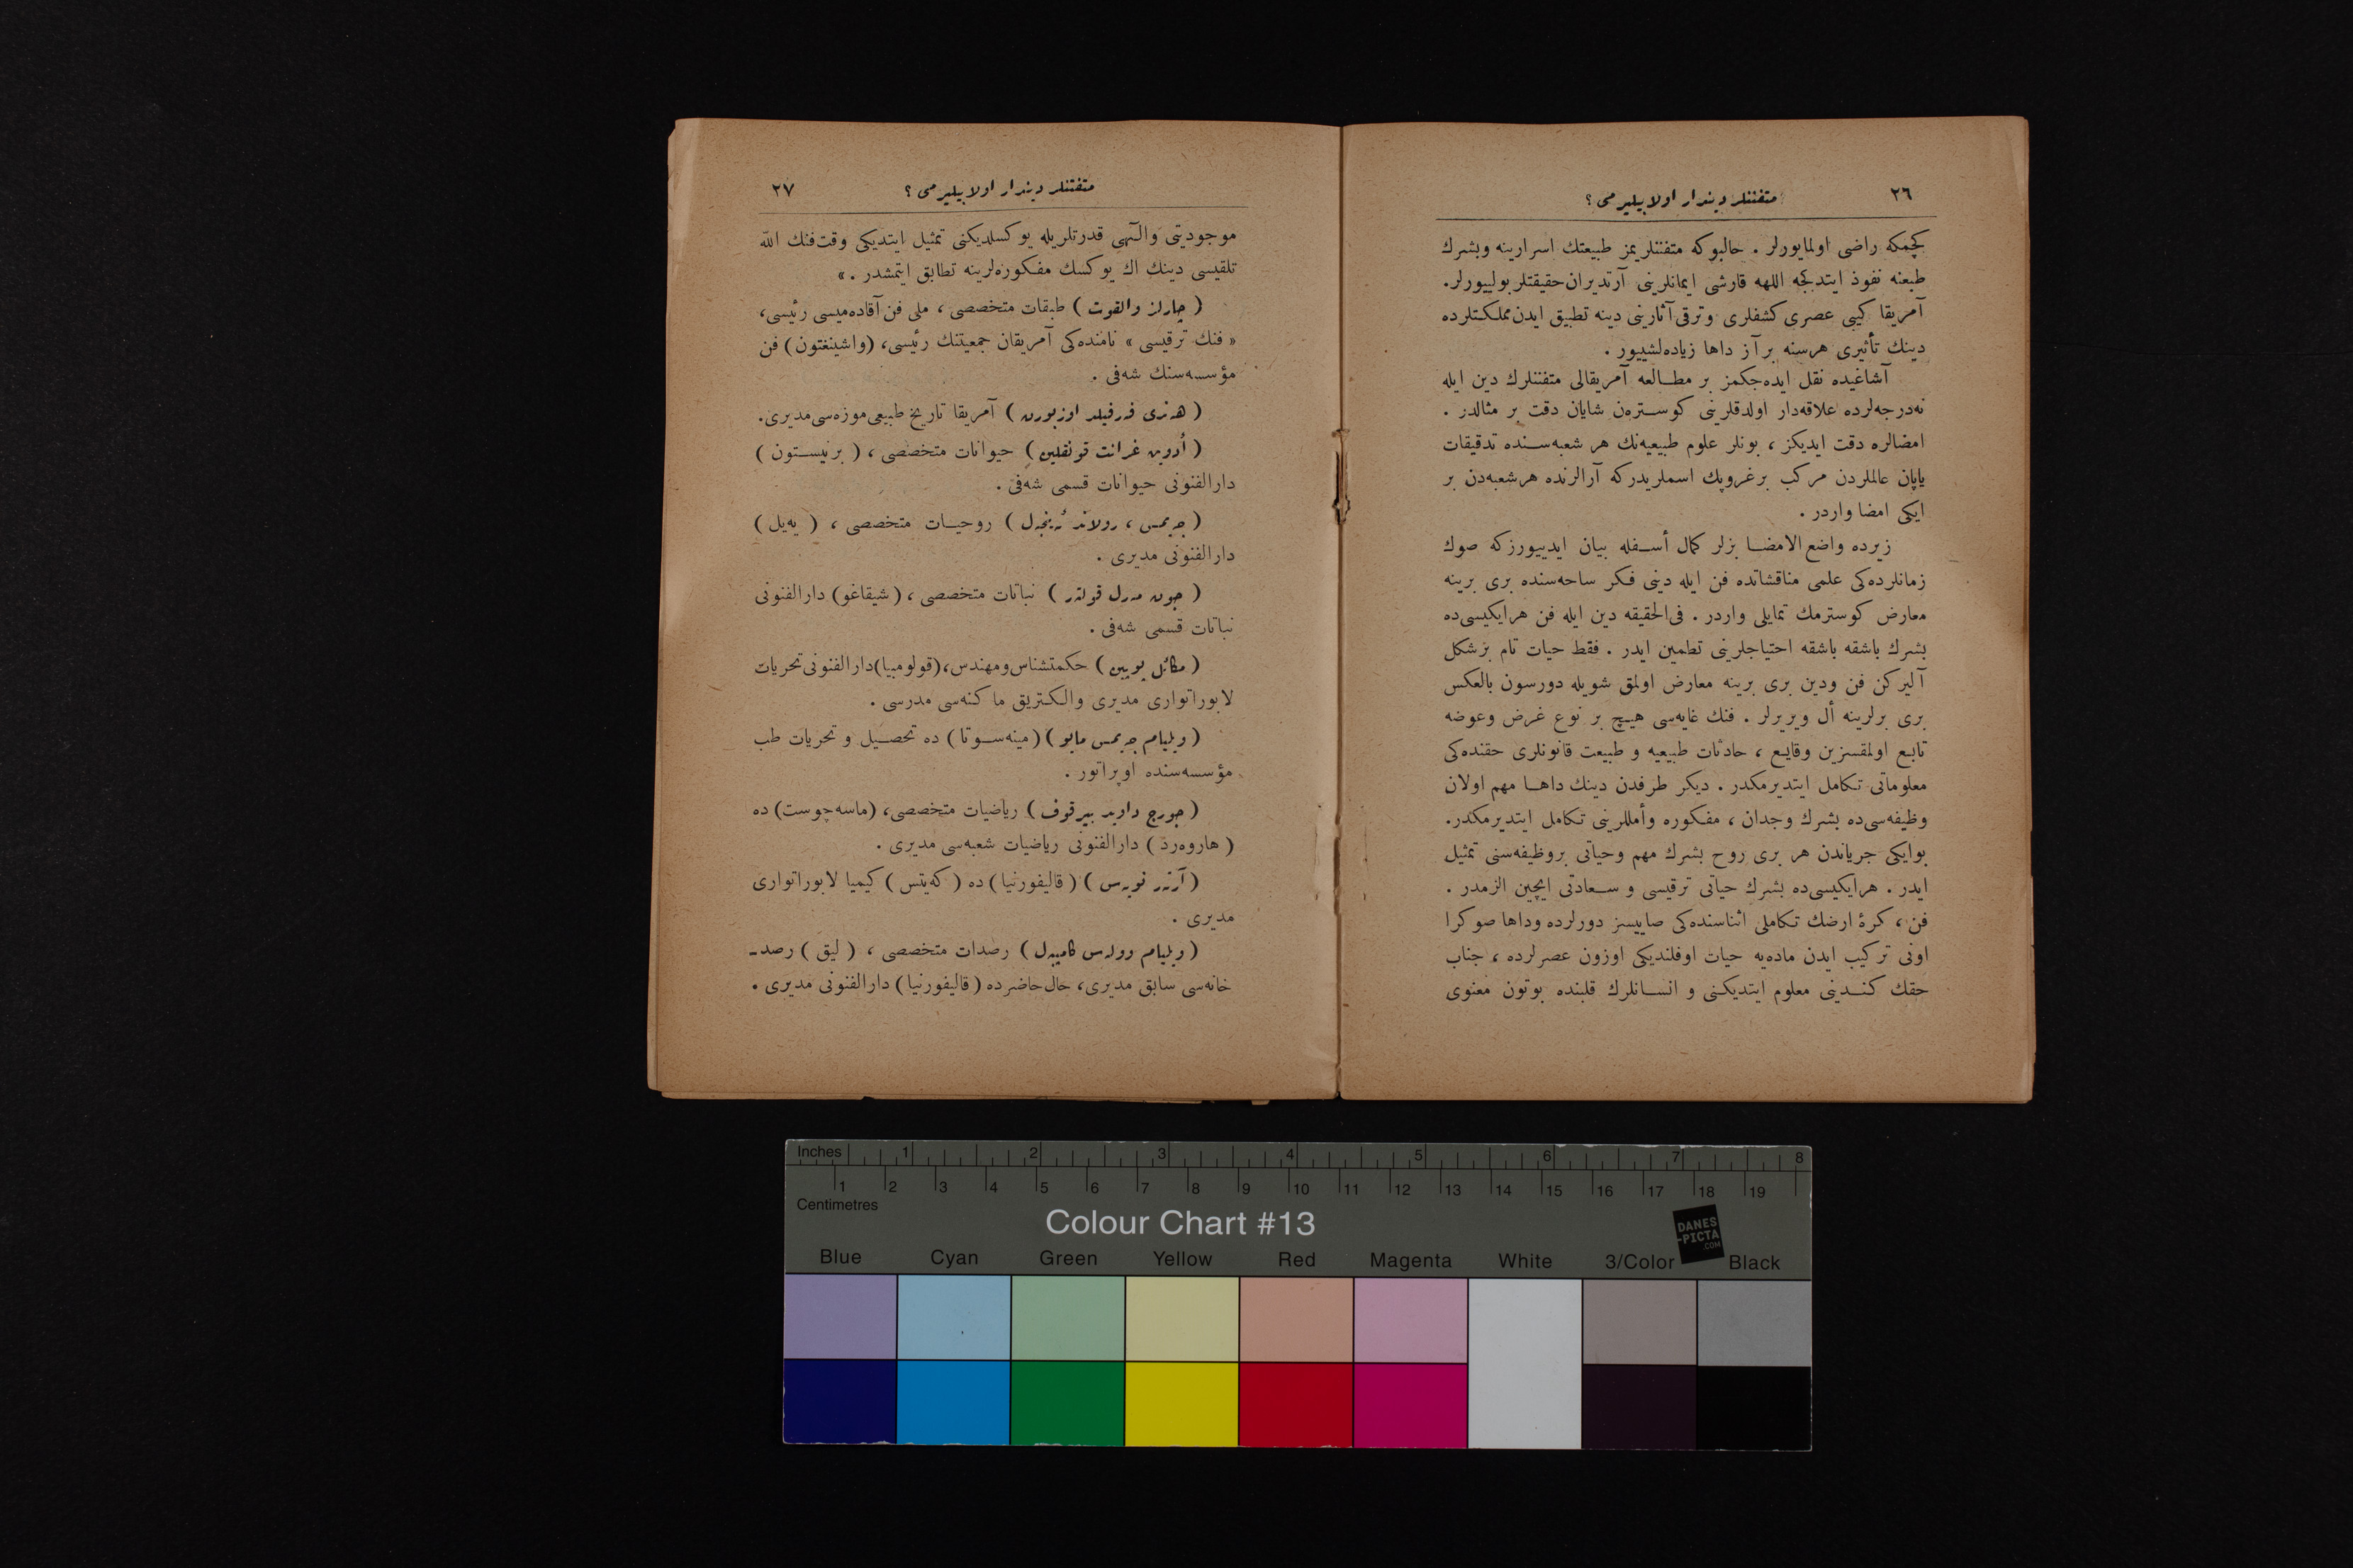 ٢٦
متفننلر دیندار اولابیلیرمی ؟
کچمکه راضی اولمایورلر . حالبوکه متفننلریمز طبیعتك اسرارینه وبشرك
طبعنه نفوذ ایتدکجه اللهه قارشی ایمانلرینی آرتدیران حقیقتلر بولییورلر.
آمریقا کیی عصری کشفلری وترقی آثارینی دینه تطبیق ایدن مملکتلرده
دینك تأثیری هرسنه برآز داها زیادهلشییور .
آشاغیده نقل ایدهجکمز بر مطالعه آمریقالی متفننلرك دین ایله
نهدرجهلرده علاقهدار اولدقلرینی کوسترهن شایان دقت بر مثالدر .
امضالره دقت ایدیکز ، بونلر علوم طبیعیهنك هر شعبهسنده تدقیقات
یاپان عالملردن مرکب برغروپك اسملریدرکه آرالرنده هرشعبهدن بر
ایکی امضا واردر .
زیرده واضع الامضا بزلر کمال أسفله بیان ایدییورزکه صوك
زمانلردهکی علمی مناقشاتده فن ایله دینی فکر ساحهسنده بری برینه
معارض کوسترمك تمایلی واردر . فیالحقیقه دین ایله فن هرایکیسیده
بشرك باشقه باشقه احتیاجلرینی تطمین ایدر . فقط حیات تام برشکل
آلیرکن فن ودین بری برینه معارض اولمق شویله دورسون بالعکس
بری برلرینه أل ویریرلر . فنك غایهسی هیچ بر نوع غرض وعوضه
تابع اولمقسزین وقایع ، حادثات طبیعیه و طبیعت قانونلری حقندهکی
معلوماتی تکامل ایتدیرمکدر . دیکر طرفدن دینك داها مهم اولان
وظیفهسیده بشرك وجدان ، مفکوره وأمللرینی تکامل ایتدیرمکدر.
بوایکی جریاندن هر بری روح بشرك مهم وحیاتی بروظیفهسنی تمثیل
ایدر . هرایکیسیده بشرك حیاتی ترقیسی و سعادتی ایچین الزمدر .
فن ، کرۀ ارضك تکاملی اثناسندهکی صاییسز دورلرده وداها صوکرا
اونی ترکیب ایدن مادهیه حیات اوفلندیکی اوزون عصرلرده ، جناب
حقك کندینی معلوم ایتدیکنی و انسانلرك قلبنده بوتون معنوی
متفننلر دیندار اولابیلیرمی ؟
٢٧
موجودیتی والٓهی قدرتلریله یوکسلدیکنی تمثیل ایتدیکی وقت فنك الله
تلقیسی دینك اك یوکسك مفکورهلرینه تطابق ایتمشدر . »
( چارلز والقوت ) طبقات متخصصی ، ملی فن آقادهمیسی رئیسی،
« فنك ترقیسی » نامندهکی آمریقان جمعیتنك رئیسی، (واشینغتون) فن
مؤسسهسنك شهفی .
( هنری فرفیلد اوزبورن ) آمریقا تاریخ طبیعی موزهسی مدیری.
( أدوین غرانت قونقلین ) حیوانات متخصصی ، ( برنیستون )
دارالفنونی حیوانات قسمی شهفی .
( جیمس ، رولاند ئهنجهل ) روحیات متخصصی ، ( یهیل )
دارالفنونی مدیری .
( جون مرل قولتر ) نباتات متخصصی ، (شیقاغو) دارالفنونی
نباتات قسمی شهفی .
( مکائل پوپین ) حکمتشناس ومهندس، (قولومبیا) دارالفنونی تحریات
لابوراتواری مدیری والکتریق ماکنهسی مدرسی .
( ویلیام جیمس مایو ) (مینهسوتا) ده تحصیل و تحریات طب
مؤسسهسنده اوپراتور .
( جورج داوید بیرقوف ) ریاضیات متخصصی، (ماسهچوست) ده
( هاروهرد ) دارالفنونی ریاضیات شعبهسی مدیری .
( آرتر نویس ) ( قالیفورنیا ) ده ( کهیتس ) کیمیا لابوراتواری
مدیری .
( ویلیام وولهس کامپبل ) رصدات متخصصی ، ( لیق ) رصد ـ
خانهسی سابق مدیری، حال حاضرده ( قالیفورنیا ) دارالفنونی مدیری .
Inches 1 2 3 4 5 6 7 8
1 2 3 4 5 6 7 8 9 10 11 12 13 14 15 16 17 18 19
Centimetres
Colour Chart #13
DANES
-PICTA
.COM
Blue Cyan Green Yellow Red Magenta White 3/Color Black